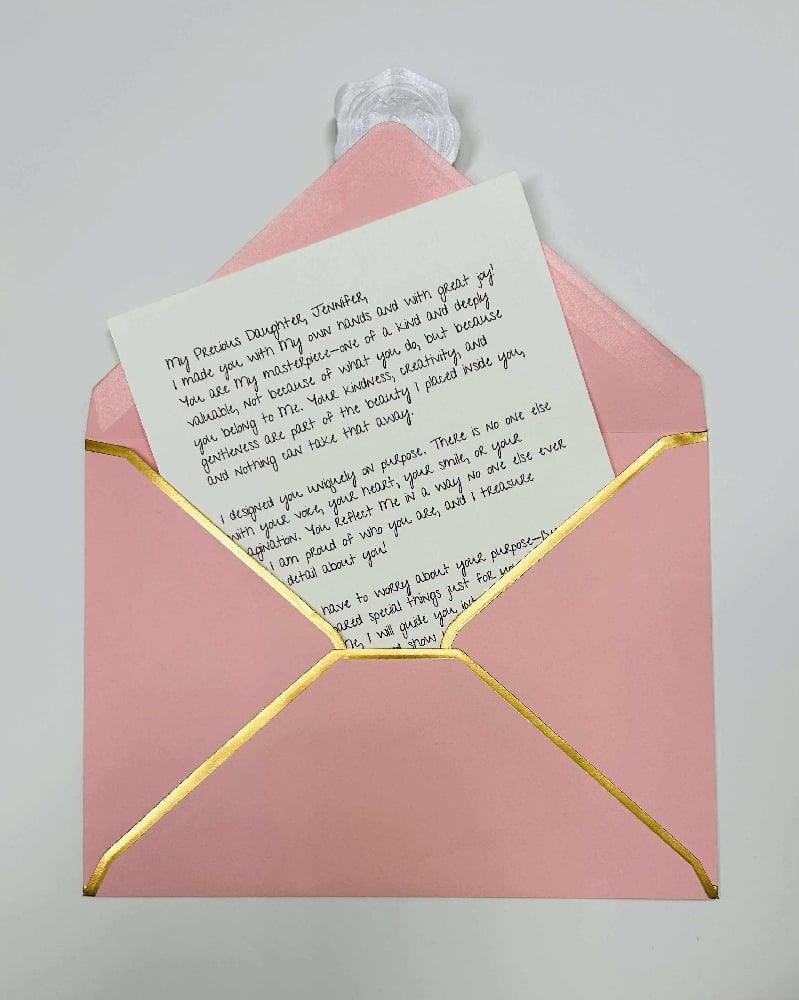 My Precious Daughter, Jennifer,
I made you with My own hands and with great joy!
You are My masterpiece—one of a kind and deeply
valuable, not because of what you do, but because
you belong to Me. Your kindness, creativity, and
gentleness are part of the beauty I placed inside you,
and nothing can take that away.
I designed you uniquely on purpose. There is no one else
with your voice, your heart, your smile, or your
agination. You reflect Me in a way no one else ever
I am proud of who you are, and I treasure
detail about you!
have to worry about your purpose—
pared special things just for
I will guide you
show